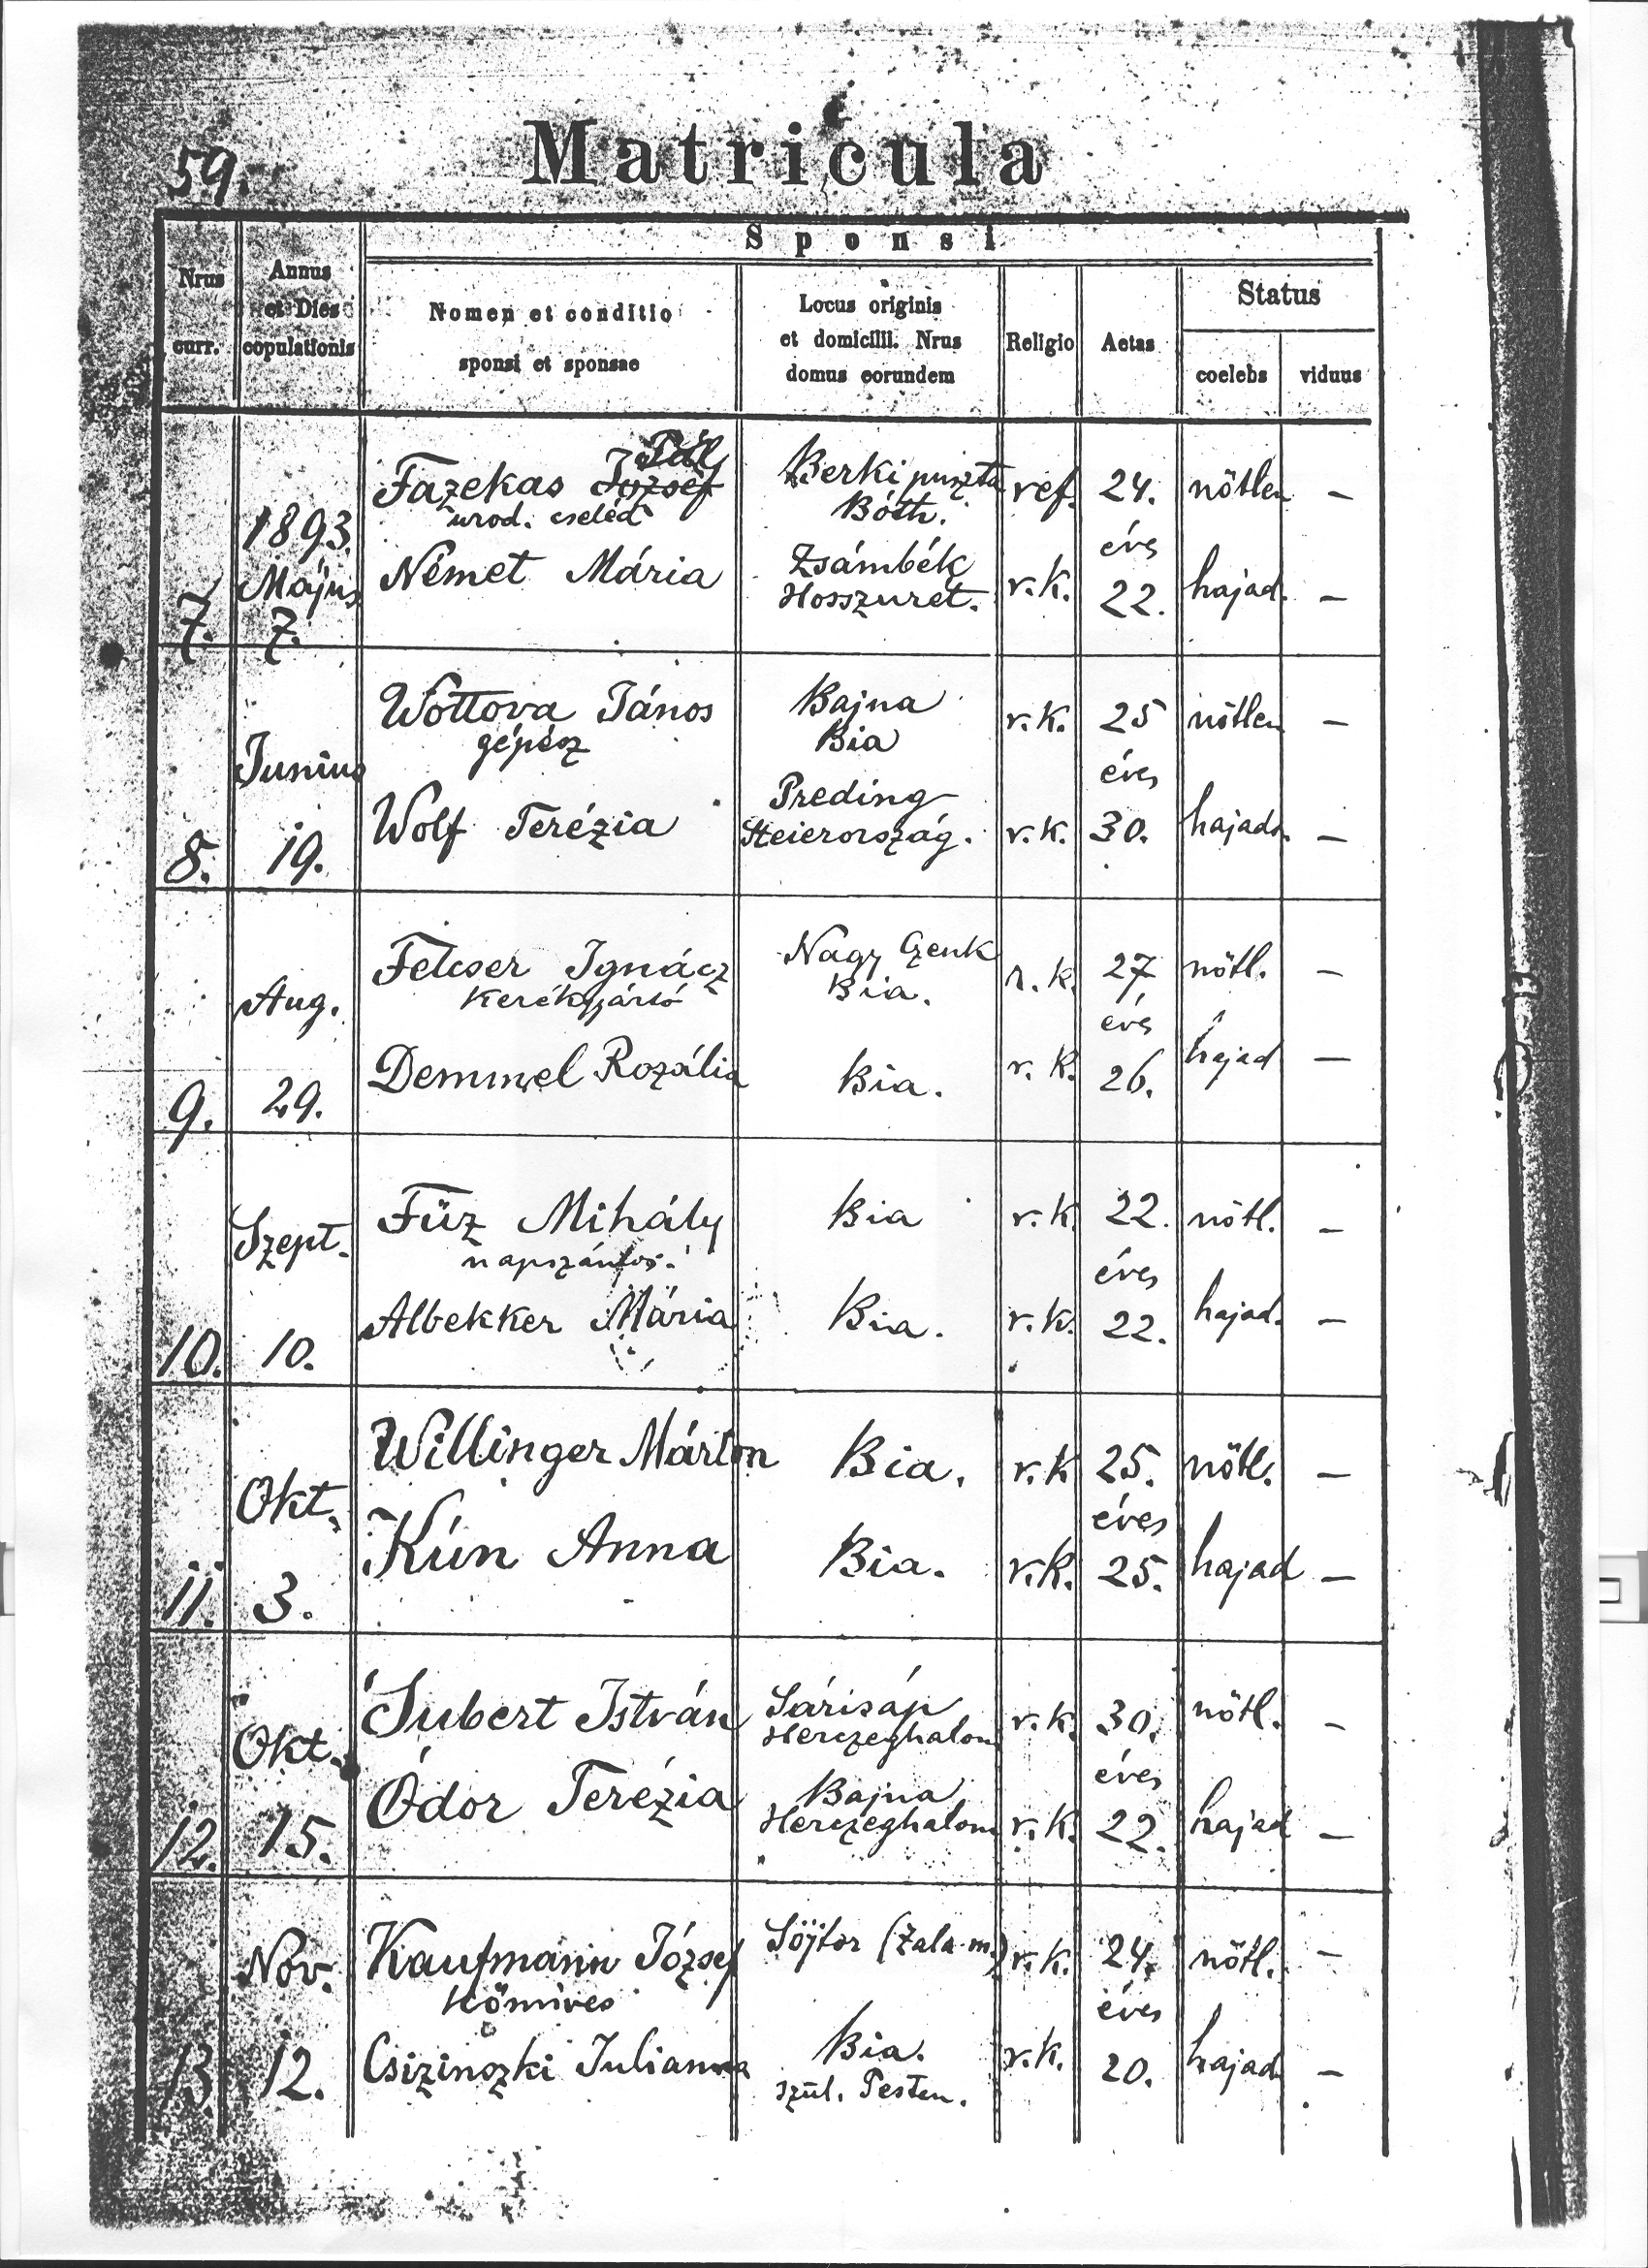 59.
Matricula
Sponsi
Nrus curr.
Annus et Dies copulationis
Nomen et conditio sponsi et sponsae
Locus originis et domicilii. Nrus domus eorundem
Religio
Aetas
Status
coelebs
viduus
7.
1893. Május 7.
Fazekas József Pál
urod. cseléd
Berki puszta
Bóth.
ref.
24.
éves
nőtlen
–
Német Mária
Zsámbék
Hosszurét.
r.k.
22.
hajad.
–
8.
Junius 19.
Wottova János
gépész
Bajna
Bia
r.k.
25
éves
nőtlen
–
Wolf Terézia
Preding
Steierország.
r.k.
30.
hajado.
–
9.
Aug. 29.
Felcser Ignácz
Kerékgyártó
Nagy Czenk
Bia.
r.k.
27
éves
nőtl.
–
Demmel Rozália
Bia.
r.k.
26.
hajad
–
10.
Szept. 10.
Füz Mihály
napszámos.
Bia
r.k.
22.
éves
nőtl.
–
Albekker Mária
Bia.
r.k.
22.
hajad.
–
11.
Okt. 3.
Willinger Márton
Bia.
r.k
25.
éves
nőtl.
–
Kún Anna
Bia.
r.k.
25.
hajad
–
12.
Okt. 15.
Subert István
Sárisáp
Herczeghalom
r.k.
30.
éves
nőtl.
–
Ódor Terézia
Bajna
Herczeghalom
r.k.
22.
hajad
–
13.
Nov. 12.
Kaufmann József
Kőmives
Söjtör (Zala m.)
r.k.
24.
éves
nőtl.
–
Csizinszki Julianna
Bia.
szül. Pesten.
r.k.
20.
hajad
–